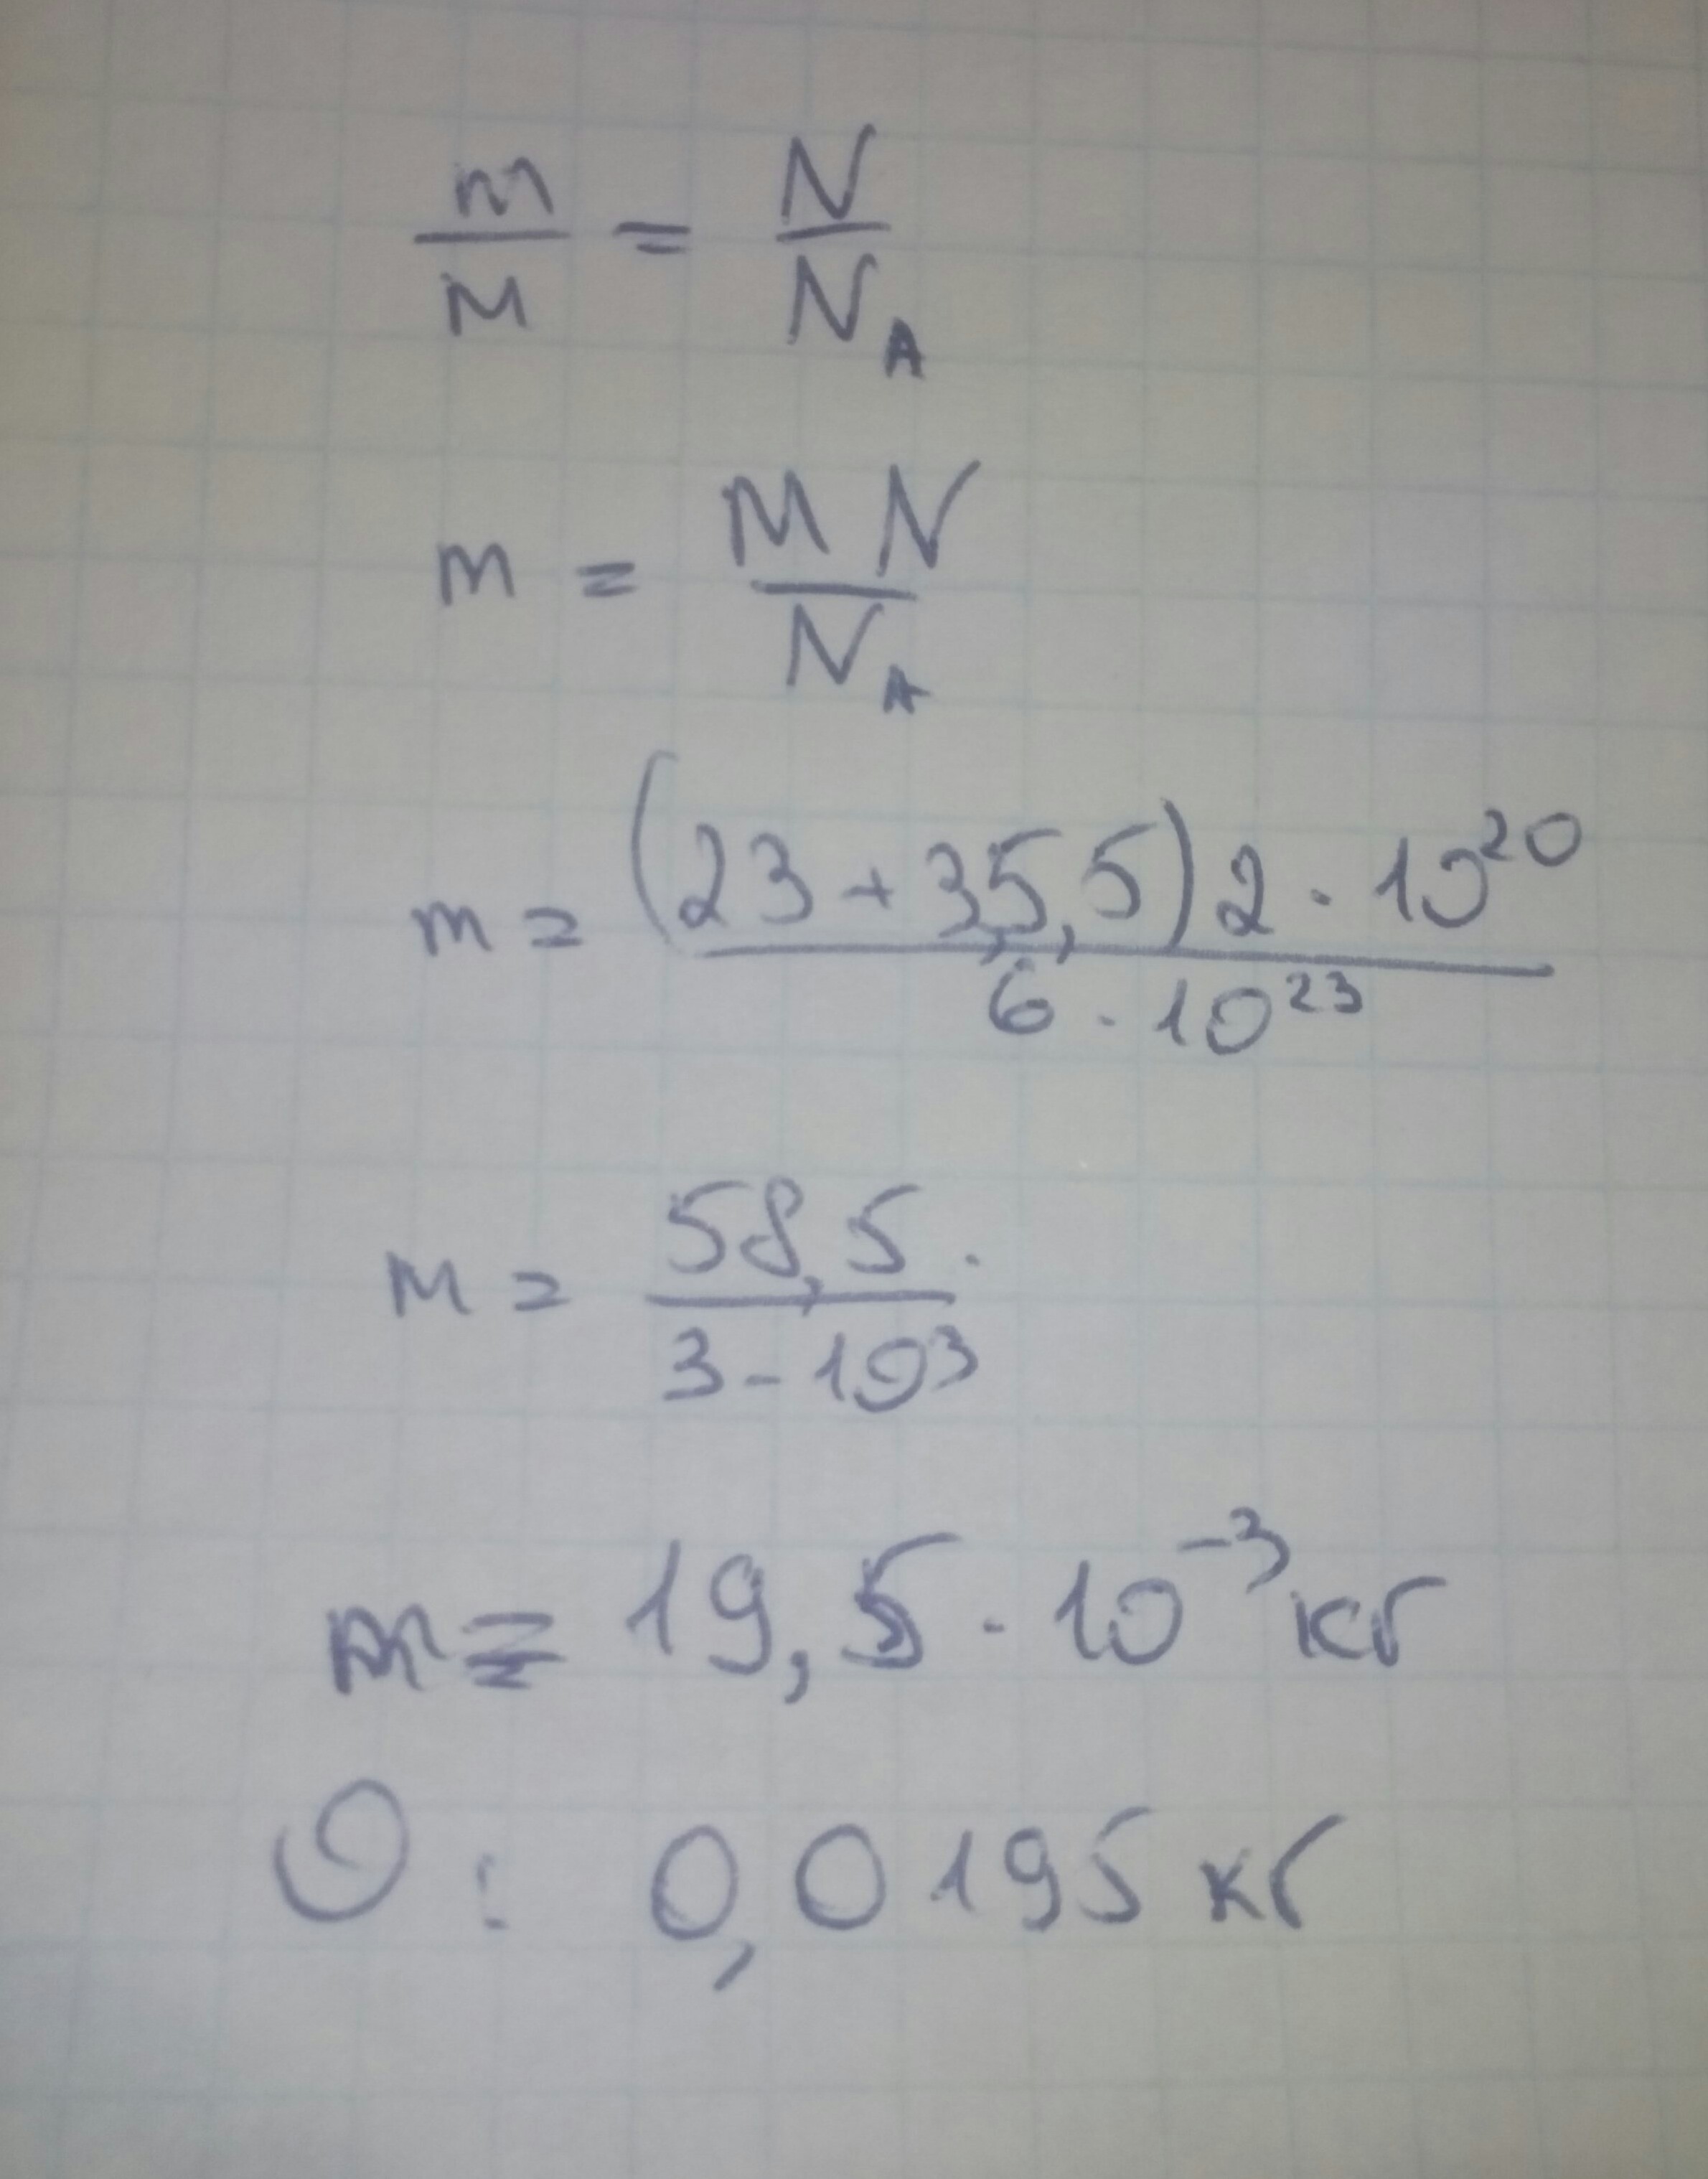 m/M = N/N_A
m = M N/N_A
m = (23 + 35,5) 2 · 10^20 / 6 · 10^23
m = 58,5 · / 3 - 10^3
m = 19,5 · 10^-3 кг
О : 0,0195 кг